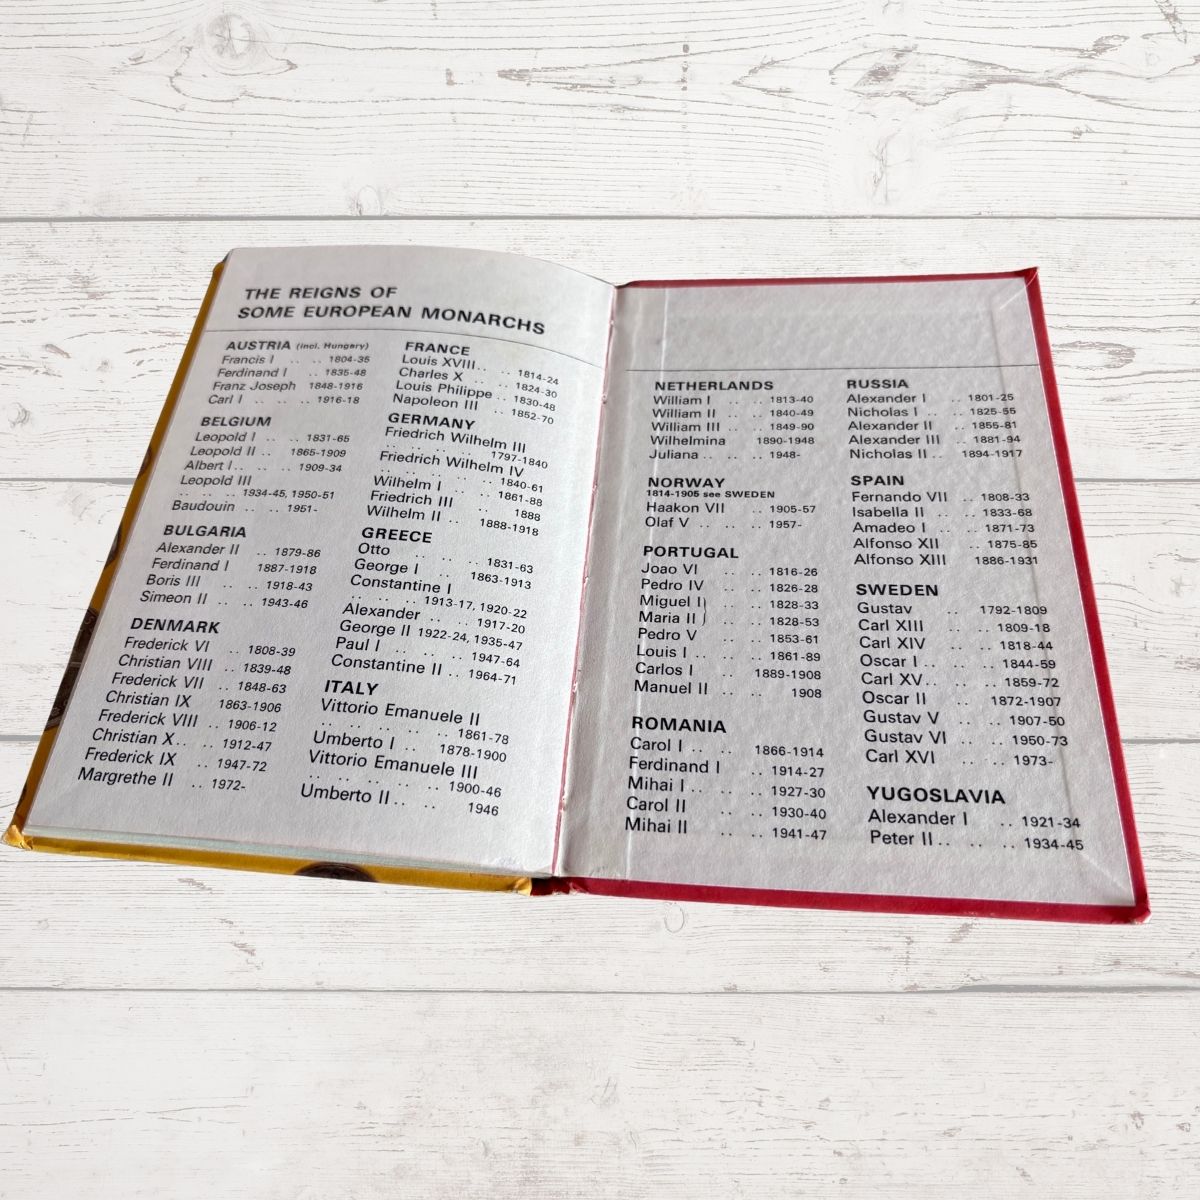 THE REIGNS OF
SOME EUROPEAN MONARCHS
AUSTRIA (incl. Hungary)
Francis I .. .. 1804-35
Ferdinand I .. 1835-48
Franz Joseph 1848-1916
Carl I .. .. .. 1916-18
BELGIUM
Leopold I .. .. 1831-65
Leopold II .. 1865-1909
Albert I .. .. 1909-34
Leopold III
.. .. .. 1934-45, 1950-51
Baudouin .. .. 1951-
BULGARIA
Alexander II .. 1879-86
Ferdinand I 1887-1918
Boris III .. .. 1918-43
Simeon II .. .. 1943-46
DENMARK
Frederick VI .. 1808-39
Christian VIII .. 1839-48
Frederick VII .. 1848-63
Christian IX 1863-1906
Frederick VIII .. 1906-12
Christian X .. .. 1912-47
Frederick IX .. 1947-72
Margrethe II .. 1972-
FRANCE
Louis XVIII .. .. 1814-24
Charles X .. .. 1824-30
Louis Philippe .. 1830-48
Napoleon III .. 1852-70
GERMANY
Friedrich Wilhelm III
.. .. .. .. 1797-1840
Friedrich Wilhelm IV
.. .. .. .. 1840-61
Wilhelm I .. .. 1861-88
Friedrich III .. 1888
Wilhelm II .. 1888-1918
GREECE
Otto .. .. 1831-63
George I .. 1863-1913
Constantine I
.. .. .. 1913-17, 1920-22
Alexander .. .. 1917-20
George II 1922-24, 1935-47
Paul I .. .. .. 1947-64
Constantine II .. 1964-71
ITALY
Vittorio Emanuele II
.. .. .. .. 1861-78
Umberto I .. 1878-1900
Vittorio Emanuele III
.. .. .. .. 1900-46
Umberto II .. .. 1946
NETHERLANDS
William I .. .. 1813-40
William II .. .. 1840-49
William III .. .. 1849-90
Wilhelmina 1890-1948
Juliana .. .. 1948-
NORWAY
1814-1905 see SWEDEN
Haakon VII .. 1905-57
Olaf V .. .. .. 1957-
PORTUGAL
Joao VI .. .. 1816-26
Pedro IV .. .. 1826-28
Miguel I) .. .. 1828-33
Maria II) .. .. 1828-53
Pedro V .. .. 1853-61
Louis I .. .. .. 1861-89
Carlos I .. 1889-1908
Manuel II .. .. 1908
ROMANIA
Carol I .. .. 1866-1914
Ferdinand I .. 1914-27
Mihai I .. .. .. 1927-30
Carol II .. .. 1930-40
Mihai II .. .. 1941-47
RUSSIA
Alexander I .. 1801-25
Nicholas I .. .. 1825-55
Alexander II .. 1855-81
Alexander III .. 1881-94
Nicholas II .. 1894-1917
SPAIN
Fernando VII .. 1808-33
Isabella II .. .. 1833-68
Amadeo I .. .. 1871-73
Alfonso XII .. 1875-85
Alfonso XIII 1886-1931
SWEDEN
Gustav .. 1792-1809
Carl XIII .. .. 1809-18
Carl XIV .. .. 1818-44
Oscar I .. .. .. 1844-59
Carl XV .. .. .. 1859-72
Oscar II .. 1872-1907
Gustav V .. .. 1907-50
Gustav VI .. .. 1950-73
Carl XVI .. .. 1973-
YUGOSLAVIA
Alexander I .. 1921-34
Peter II .. .. .. 1934-45